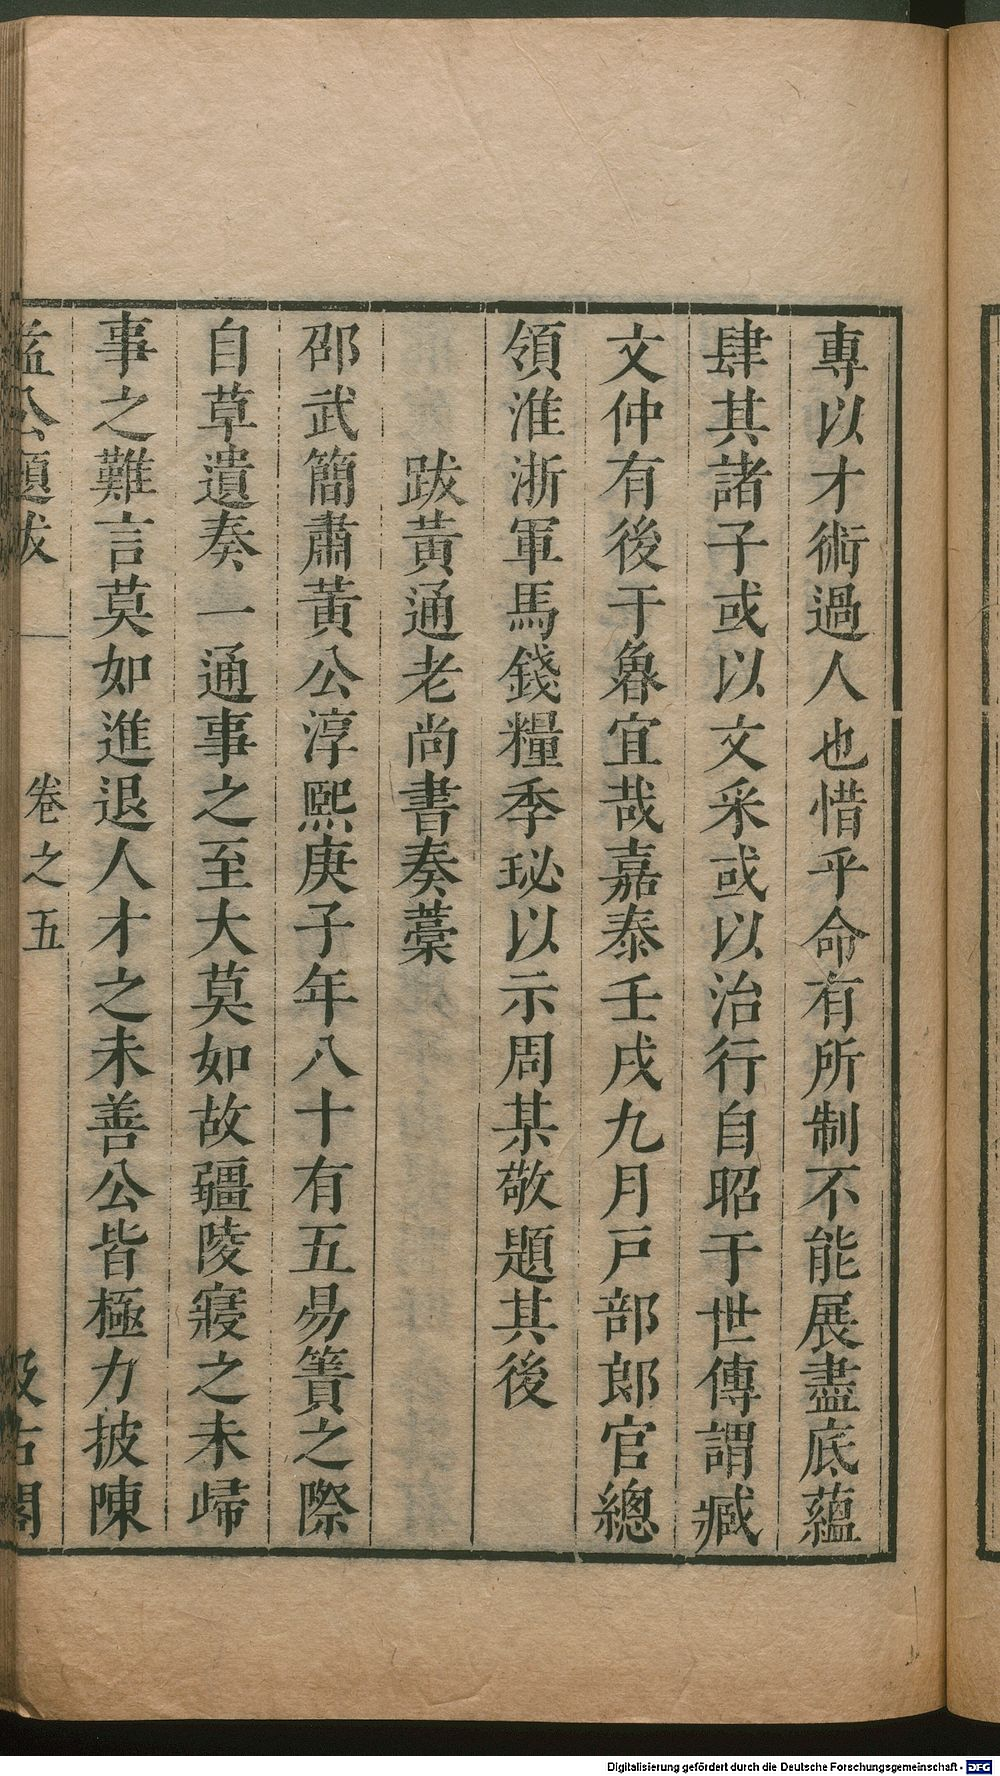 專以才術過人也惜乎命有所制不能展盡底蘊
肆其諸子或以文采或以治行自昭于世傳謂臧
文仲有後于魯宜哉嘉泰壬戌九月戸部郎官總
領淮浙軍馬錢糧季珌以示周某敬題其後
跋黃通老尚書奏藁
邵武簡肅黃公淳熙庚子年八十有五易簀之際
自草遺奏一通事之至大莫如故疆陵寢之未歸
事之難言莫如進退人才之未善公皆極力披陳
益公題跋
卷之五
汲古閣
Digitalisierung gefördert durch die Deutsche Forschungsgemeinschaft - DFG